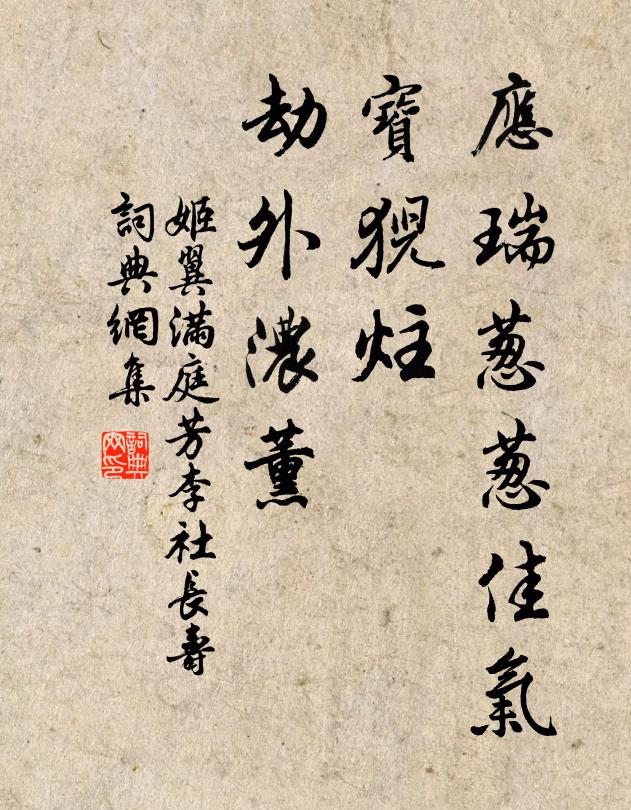 應瑞蔥蔥佳氣
寶猊炷
劫外濃薰
姬翼滿庭芳李社長壽
詞典網集
詞典
网印